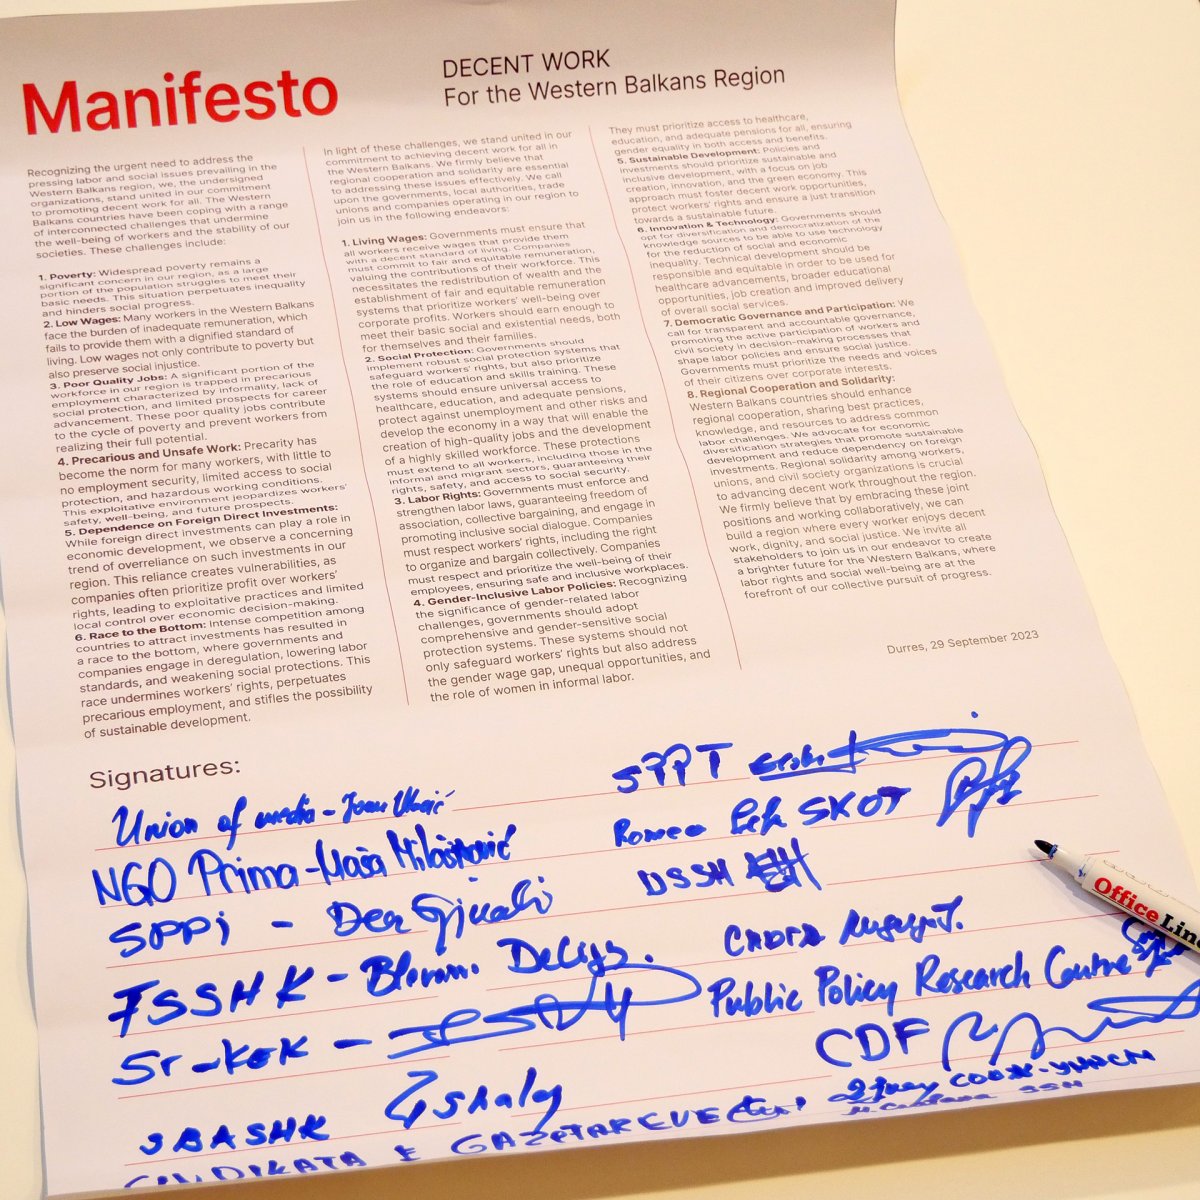 Manifesto
DECENT WORK
For the Western Balkans Region
Recognizing the urgent need to address the
pressing labor and social issues prevailing in the
Western Balkans region, we, the undersigned
organizations, stand united in our commitment
to promoting decent work for all. The Western
Balkans countries have been coping with a range
of interconnected challenges that undermine
the well-being of workers and the stability of our
societies. These challenges include:
1. Poverty: Widespread poverty remains a
significant concern in our region, as a large
portion of the population struggles to meet their
basic needs. This situation perpetuates inequality
and hinders social progress.
2. Low Wages: Many workers in the Western Balkans
face the burden of inadequate remuneration, which
fails to provide them with a dignified standard of
living. Low wages not only contribute to poverty but
also preserve social injustice.
3. Poor Quality Jobs: A significant portion of the
workforce in our region is trapped in precarious
employment characterized by informality, lack of
social protection, and limited prospects for career
advancement. These poor quality jobs contribute
to the cycle of poverty and prevent workers from
realizing their full potential.
4. Precarious and Unsafe Work: Precarity has
become the norm for many workers, with little to
no employment security, limited access to social
protection, and hazardous working conditions.
This exploitative environment jeopardizes workers'
safety, well-being, and future prospects.
5. Dependence on Foreign Direct Investments:
While foreign direct investments can play a role in
economic development, we observe a concerning
trend of overreliance on such investments in our
region. This reliance creates vulnerabilities, as
companies often prioritize profit over workers'
rights, leading to exploitative practices and limited
local control over economic decision-making.
6. Race to the Bottom: Intense competition among
countries to attract investments has resulted in
a race to the bottom, where governments and
companies engage in deregulation, lowering labor
standards, and weakening social protections. This
race undermines workers' rights, perpetuates
precarious employment, and stifles the possibility
of sustainable development.
In light of these challenges, we stand united in our
commitment to achieving decent work for all in
the Western Balkans. We firmly believe that
regional cooperation and solidarity are essential
to addressing these issues effectively. We call
upon the governments, local authorities, trade
unions and companies operating in our region to
join us in the following endeavors:
1. Living Wages: Governments must ensure that
all workers receive wages that provide them
with a decent standard of living. Companies
must commit to fair and equitable remuneration,
valuing the contributions of their workforce. This
necessitates the redistribution of wealth and the
establishment of fair and equitable remuneration
systems that prioritize workers' well-being over
corporate profits. Workers should earn enough to
meet their basic social and existential needs, both
for themselves and their families.
2. Social Protection: Governments should
implement robust social protection systems that
safeguard workers' rights, but also prioritize
the role of education and skills training. These
systems should ensure universal access to
healthcare, education, and adequate pensions,
protect against unemployment and other risks and
develop the economy in a way that will enable the
creation of high-quality jobs and the development
of a highly skilled workforce. These protections
must extend to all workers, including those in the
informal and migrant sectors, guaranteeing their
rights, safety, and access to social security.
3. Labor Rights: Governments must enforce and
strengthen labor laws, guaranteeing freedom of
association, collective bargaining, and engage in
promoting inclusive social dialogue. Companies
must respect workers' rights, including the right
to organize and bargain collectively. Companies
must respect and prioritize the well-being of their
employees, ensuring safe and inclusive workplaces.
4. Gender-Inclusive Labor Policies: Recognizing
the significance of gender-related labor
challenges, governments should adopt
comprehensive and gender-sensitive social
protection systems. These systems should not
only safeguard workers' rights but also address
the gender wage gap, unequal opportunities, and
the role of women in informal labor.
They must prioritize access to healthcare,
education, and adequate pensions for all, ensuring
gender equality in both access and benefits.
5. Sustainable Development: Policies and
investments should prioritize sustainable and
inclusive development, with a focus on job
creation, innovation, and the green economy. This
approach must foster decent work opportunities,
protect workers' rights and ensure a just transition
towards a sustainable future.
6. Innovation & Technology: Governments should
opt for diversification and democratization of the
knowledge sources to be able to use technology
for the reduction of social and economic
inequality. Technical development should be
responsible and equitable in order to be used for
healthcare advancements, broader educational
opportunities, job creation and improved delivery
of overall social services.
7. Democratic Governance and Participation: We
call for transparent and accountable governance,
promoting the active participation of workers and
civil society in decision-making processes that
shape labor policies and ensure social justice.
Governments must prioritize the needs and voices
of their citizens over corporate interests.
8. Regional Cooperation and Solidarity:
Western Balkans countries should enhance
regional cooperation, sharing best practices,
knowledge, and resources to address common
labor challenges. We advocate for economic
diversification strategies that promote sustainable
development and reduce dependency on foreign
investments. Regional solidarity among workers,
unions, and civil society organizations is crucial
to advancing decent work throughout the region.
We firmly believe that by embracing these joint
positions and working collaboratively, we can
build a region where every worker enjoys decent
work, dignity, and social justice. We invite all
stakeholders to join us in our endeavor to create
a brighter future for the Western Balkans, where
labor rights and social well-being are at the
forefront of our collective pursuit of progress.
Durres, 29 September 2023
Signatures:
Union of media -
NGO Prima - Maša
SPPI -
FSSHK -
SBASHK
SINDIKATA E GAZETAREVE
SPPT
Romeo SKOT
DSSH
Public Policy Research Centre
CDF
SSM
Office Line